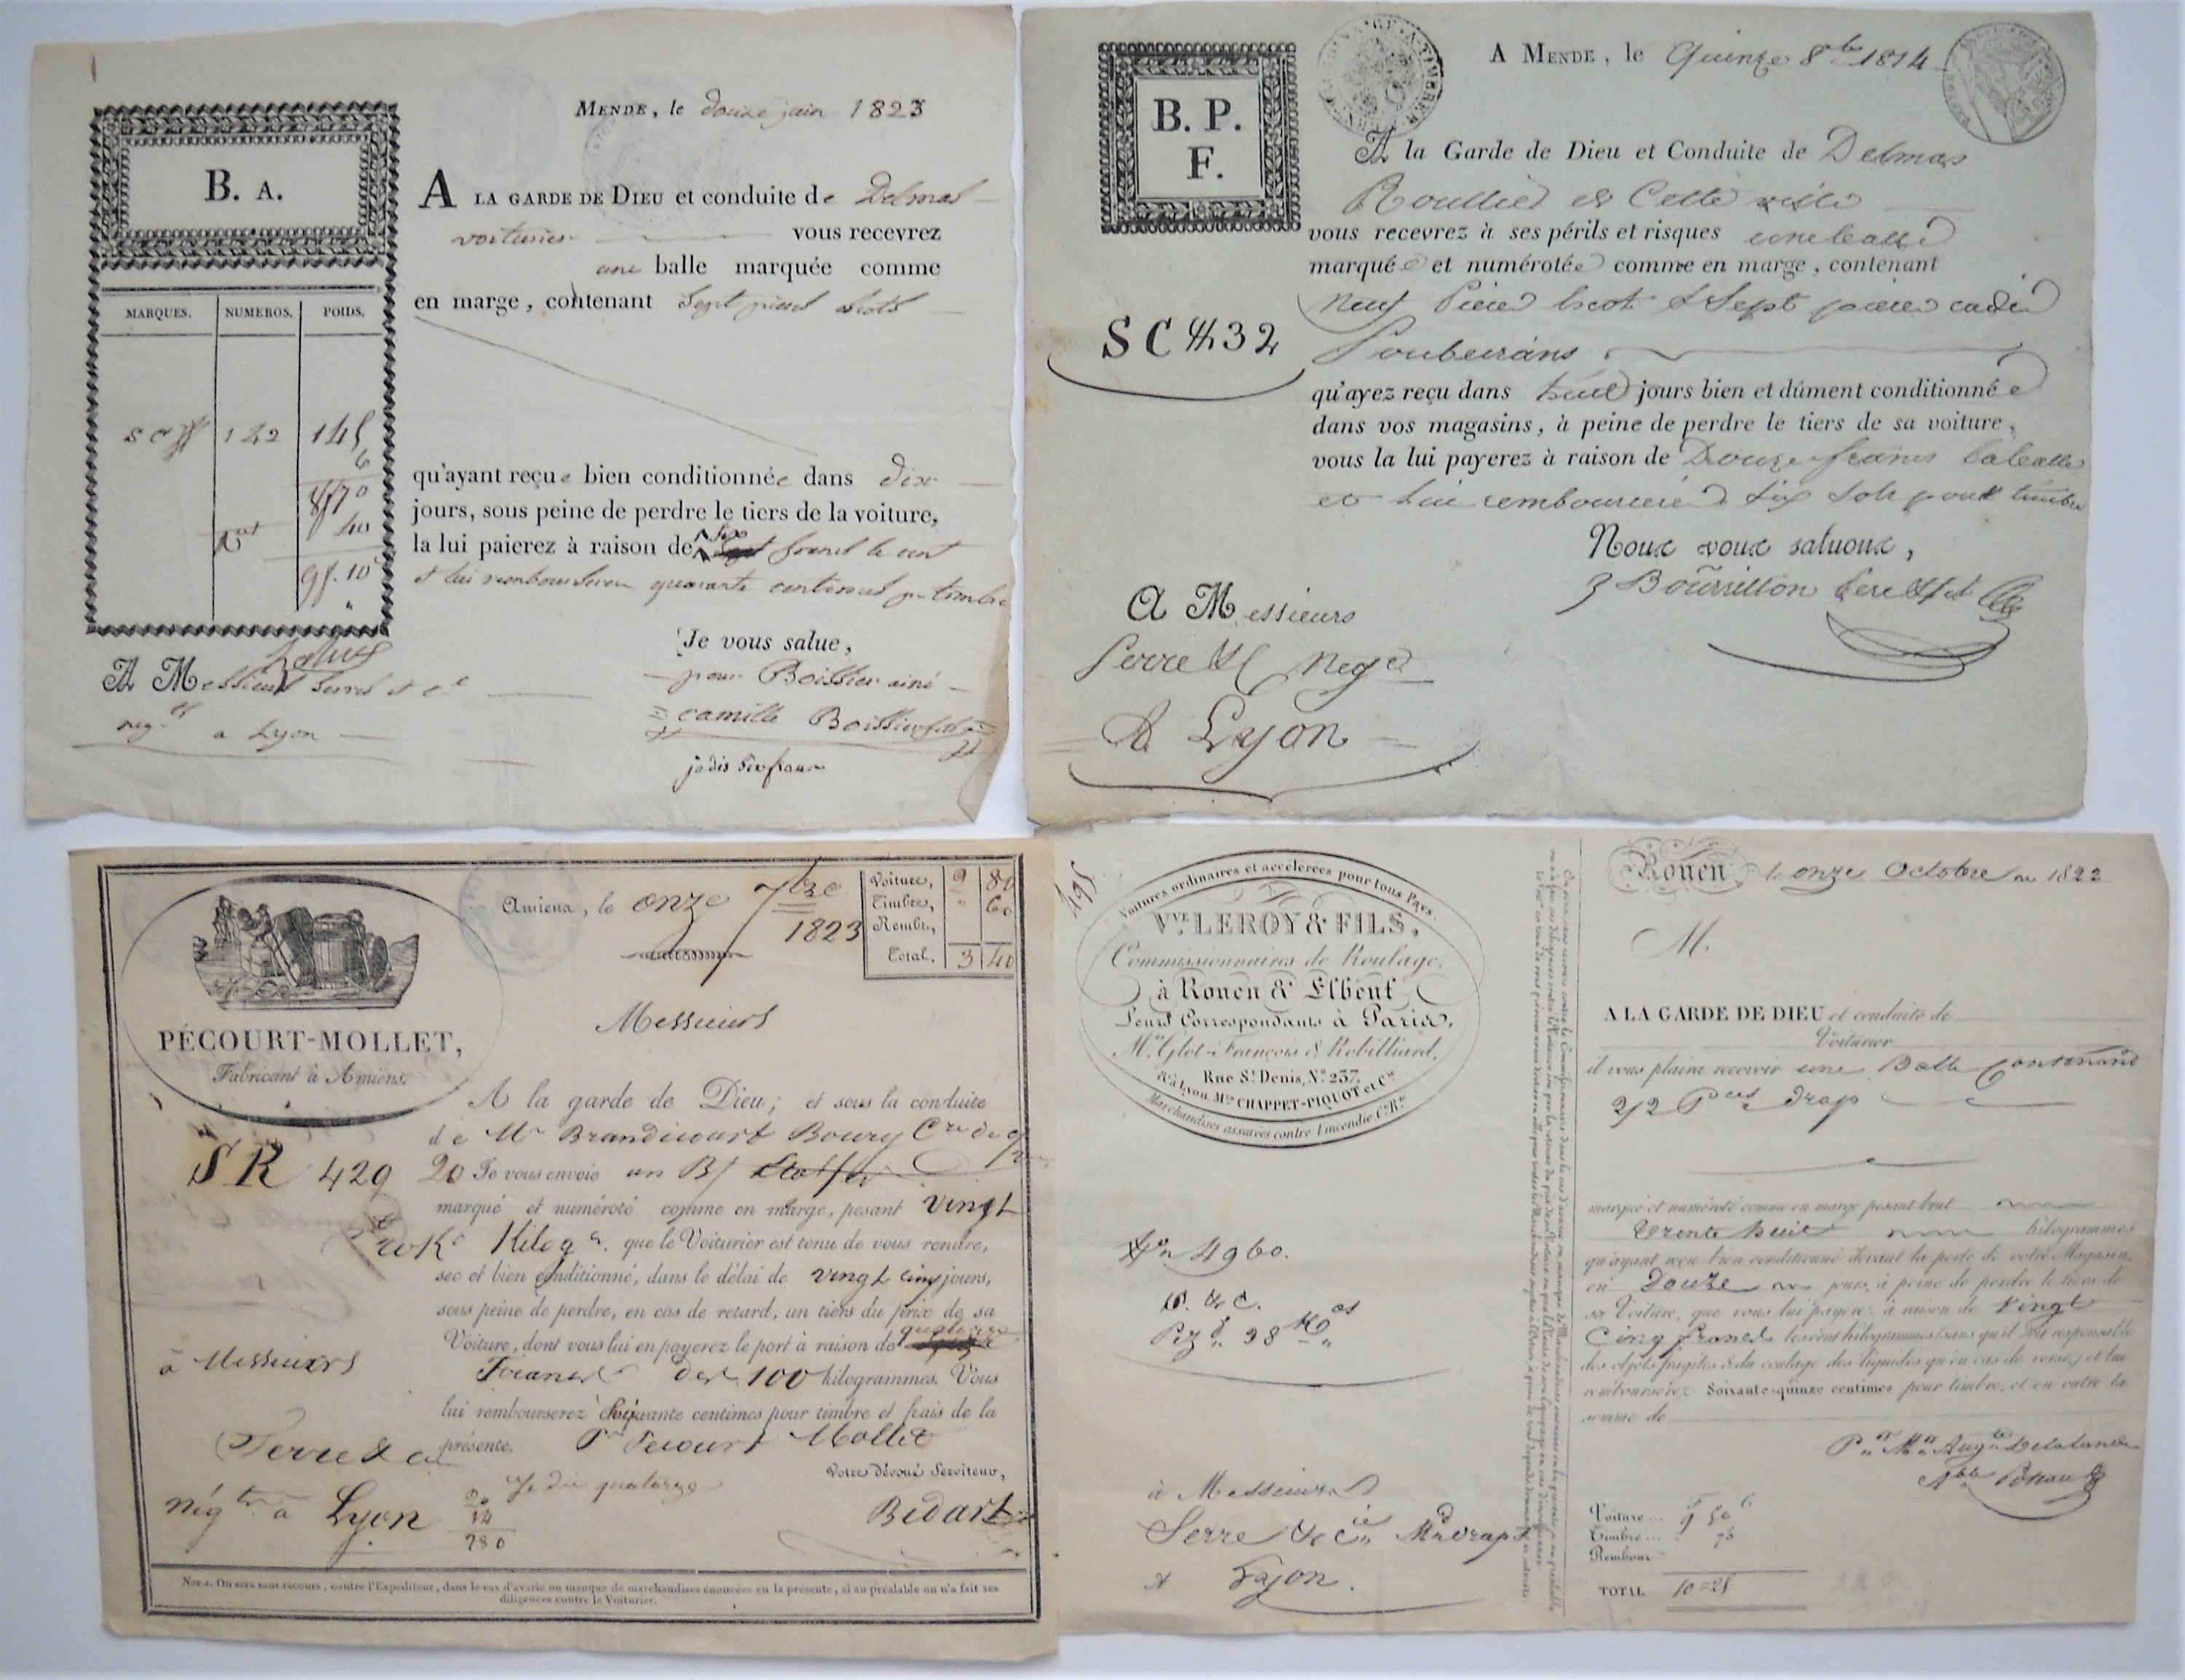 MENDE, le douze juin 1823
B. A.
A LA GARDE DE DIEU et conduite de Delmas
voiturier vous recevrez
une balle marquée comme
en marge, contenant Sept pieces
MARQUES. NUMEROS. POIDS.
142 145
6
8f70
40
9f.10
qu'ayant reçue bien conditionnée dans dix
jours, sous peine de perdre le tiers de la voiture,
la lui paierez à raison de six francs le cent
et lui rembourserez quarante centimes p. timbre
Je vous salue,
pour Boissier ainé
camille Boissier fils
je dis six francs
A Messieurs Serres et Cie
neg.ts a Lyon
A MENDE, le Quinze 8bre 1814
B. P.
F.
A la Garde de Dieu et Conduite de Delmas
Roullier de Cette ville
vous recevrez à ses périls et risques une balle
marquée et numérotée comme en marge, contenant
neuf Pièces & Sept pièces cadis
SC 32
qu'ayez reçu dans huit jours bien et dûment conditionnée
dans vos magasins, à peine de perdre le tiers de sa voiture,
vous la lui payerez à raison de Douze francs la balle
et lui rembourserez six sols pour timbre
Nous vous saluons,
Bourrillon
A Messieurs
Serre & C neg.
A Lyon
PÉCOURT-MOLLET,
Fabricant à Amiens.
Amiens, le onze 7bre
1823
Voiture, 2 80
Timbre, " 60
Remb.t,
Total. 3 40
Messieurs
A la garde de Dieu; et sous la conduite
de Mr Brandicourt Boury
SR 429
20 Je vous envoie un
marqué et numéroté comme en marge, pesant vingt
20 Ko Kilog. que le Voiturier est tenu de vous rendre,
sec et bien conditionné, dans le délai de vingt cinq jours,
sous peine de perdre, en cas de retard, un tiers du prix de sa
Voiture, dont vous lui en payerez le port à raison de quatorze
Francs Des 100 kilogrammes. Vous
lui rembourserez Soixante centimes pour timbre et frais de la
présente. Pr Pecourt Mollet
Votre dévoué Serviteur,
Je dis quatorze
Bédart
à Messieurs
Serre & Cie
Nég.ts à Lyon
20
14
280
NOTA. On sera sans recours, contre l'Expéditeur, dans le cas d'avarie ou manque de marchandises énoncées en la présente, si au préalable on n'a fait ses
diligences contre le Voiturier.
495
Voitures ordinaires et accélérées pour tous Pays.
Vve LEROY & FILS,
Commissionnaires de Roulage,
à Rouen & Elbeuf
Leurs Correspondants à Paris,
Mrs Glot-François & Robilliard,
Rue St Denis, No 257.
& à Lyon Mrs CHAPPET-PIQUOT et Cie
Marchandises assurées contre l'incendie
No 4960.
Pez 38 Kos
à Messieurs
Serre & Cie Md drapr
A Lyon.
Rouen le onze Octobre 1822
M.
A LA GARDE DE DIEU et conduite de
Voiturier
il vous plaira recevoir une Balle Contenant
2/2 Pces drap
marqué et numéroté comme en marge pesant brut
Trente huit kilogrammes
qu'ayant reçu bien conditionné devant la porte de votre Magasin,
en Douze jours, à peine de perdre le tiers de
sa Voiture, que vous lui payerez à raison de Vingt
Cinq francs les cent kilogrammes (sans qu'il soit responsable
des objets fragiles & du coulage des liquides qu'en cas de verse) et lui
rembourserez Soixante-quinze centimes pour timbre, et en outre la
somme de
Voiture... 9 50
Timbre... 75
Rembour
TOTAL 10=25